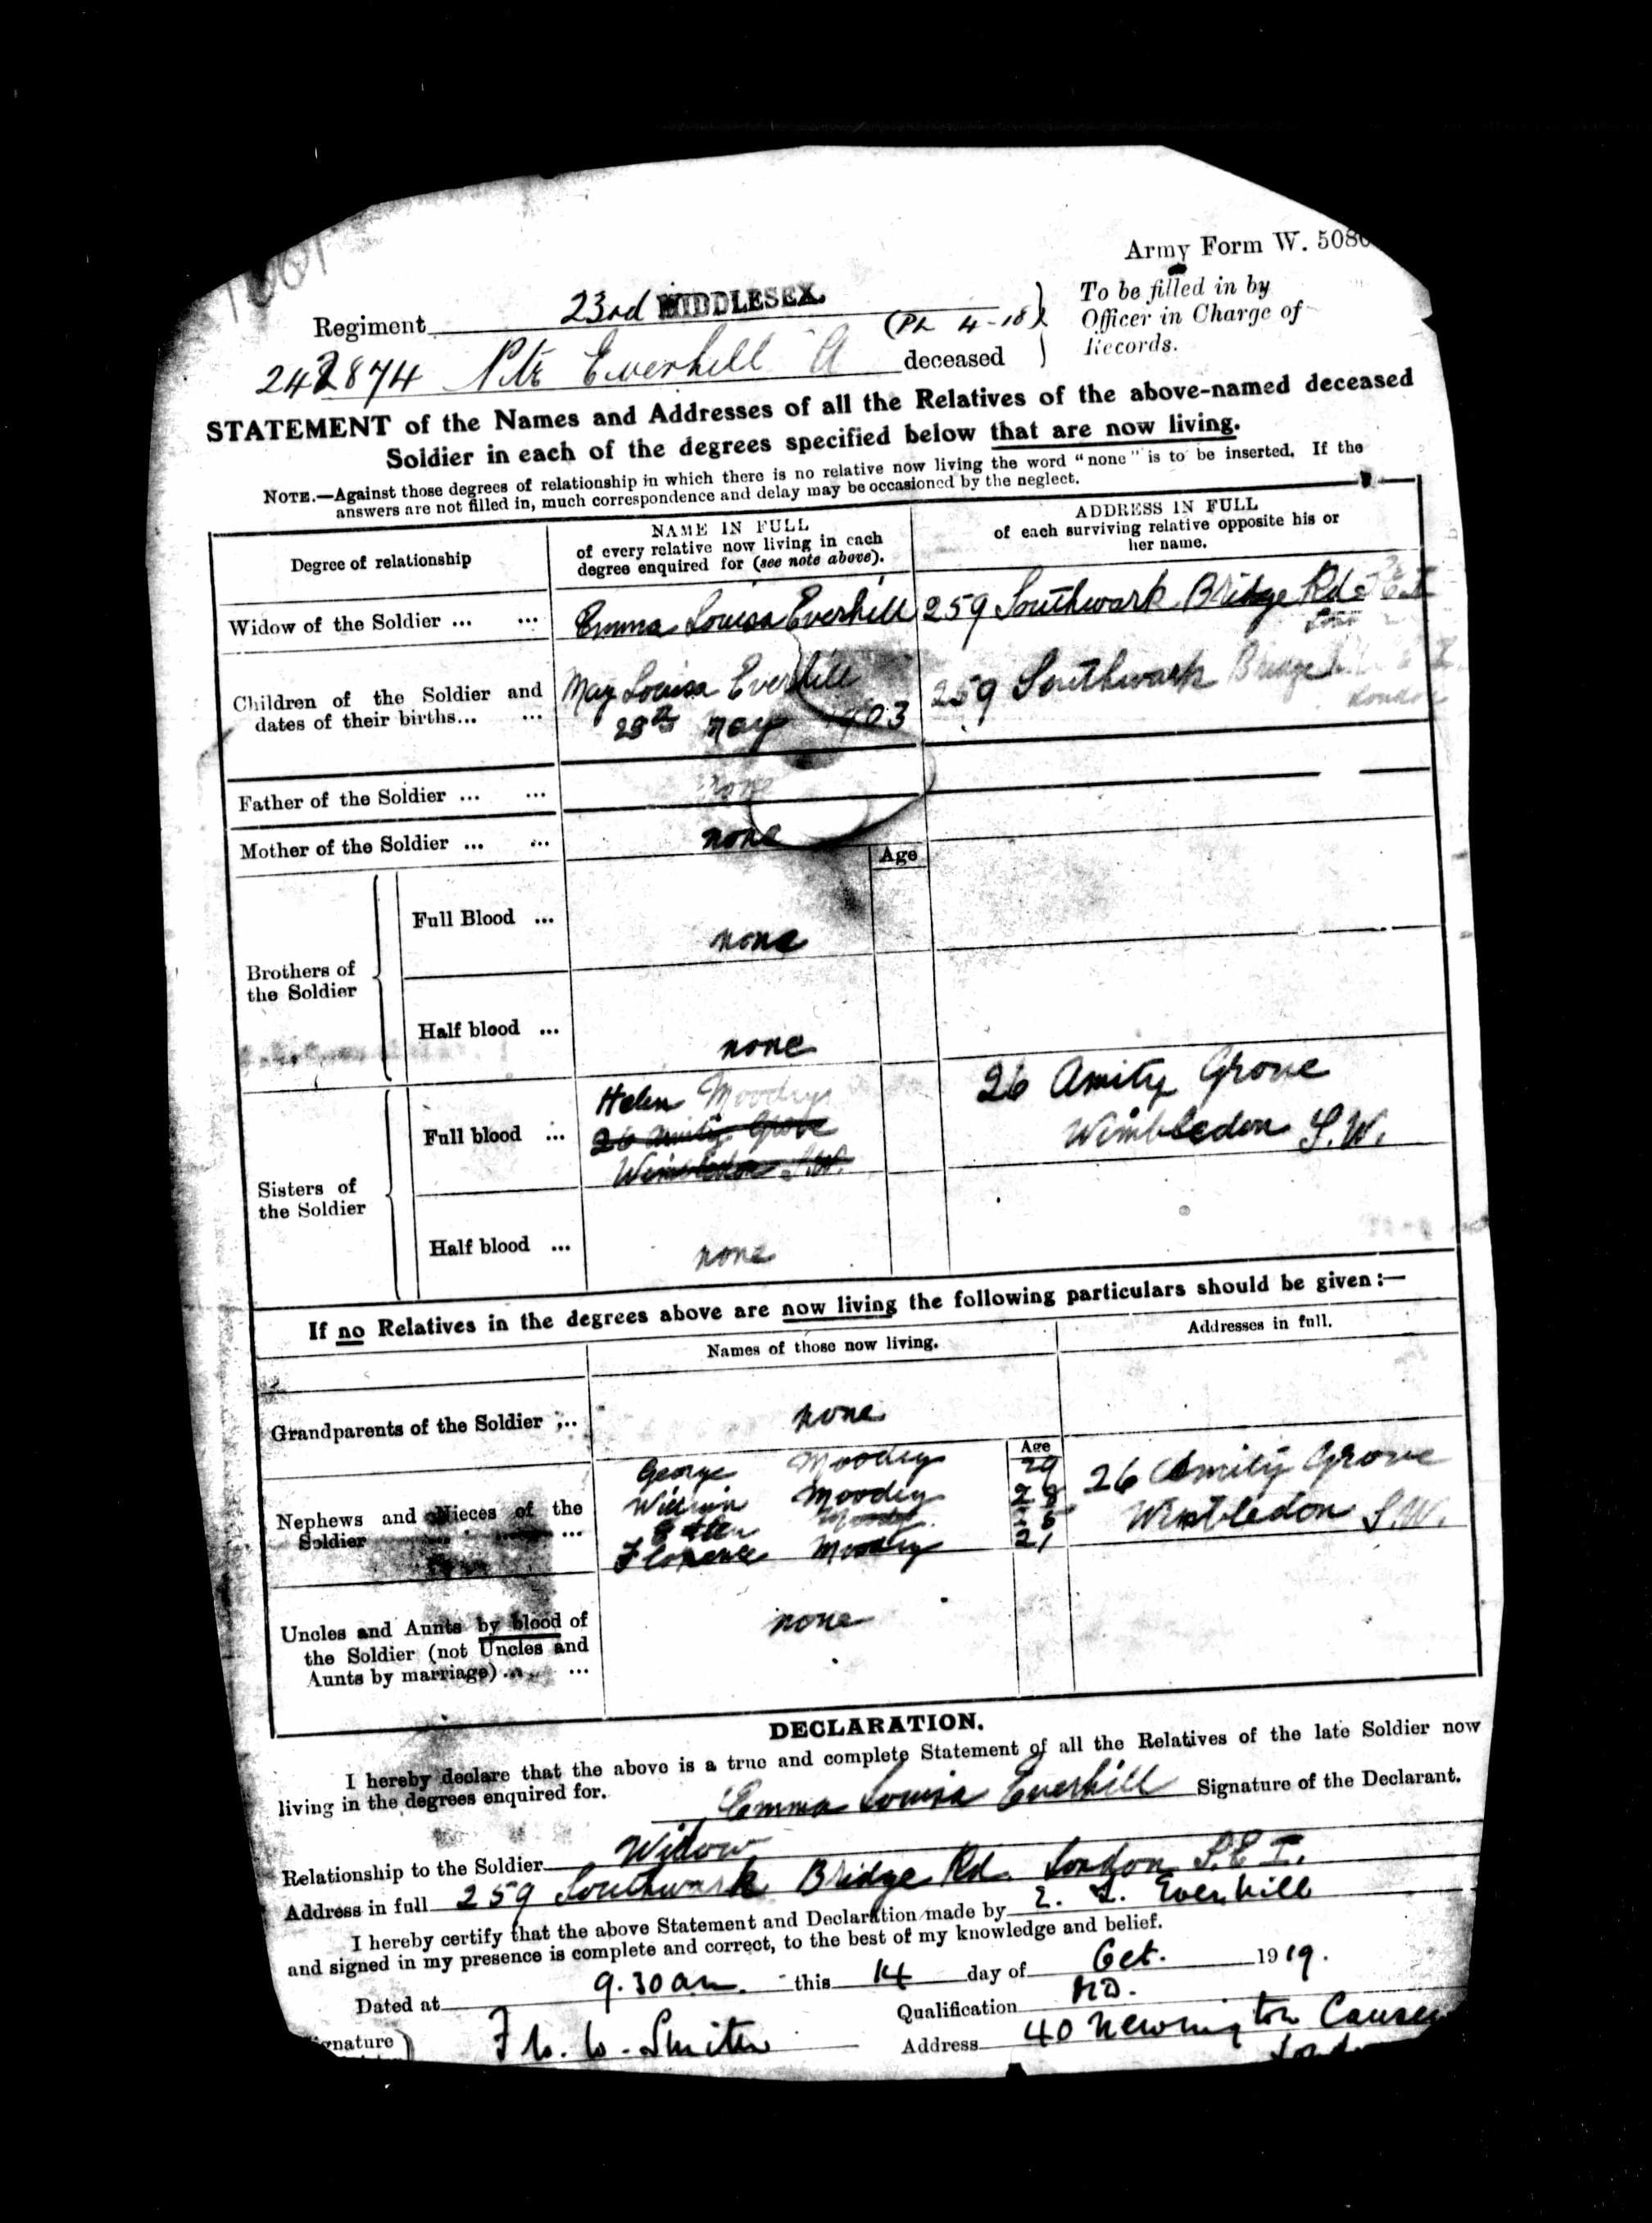 Army Form W. 508
To be filled in by
Officer in Charge of
Records.
Regiment 23rd MIDDLESEX.
242874 Pte Everhill A deceased
STATEMENT of the Names and Addresses of all the Relatives of the above-named deceased
Soldier in each of the degrees specified below that are now living.
NOTE.—Against those degrees of relationship in which there is no relative now living the word "none" is to be inserted. If the
answers are not filled in, much correspondence and delay may be occasioned by the neglect.
Degree of relationship
NAME IN FULL
of every relative now living in each
degree enquired for (see note above).
ADDRESS IN FULL
of each surviving relative opposite his or
her name.
Widow of the Soldier ... ... Emma Louisa Everhill 259 Southwark Bridge Rd
Children of the Soldier and
dates of their births... ...
May Louisa Everhill
28th May 1903
259 Southwark Bridge
London
Father of the Soldier ... ... none
Mother of the Soldier ... ... none
Age
Brothers of
the Soldier
Full Blood ... none
Half blood ... none
Sisters of
the Soldier
Full blood ... Helen Moody
26 Amity Grove
Wimbledon S.W.
26 Amity Grove
Wimbledon S.W.
Half blood ... none
If no Relatives in the degrees above are now living the following particulars should be given :—
Names of those now living.
Addresses in full.
Grandparents of the Soldier ... none
Age
Nephews and Nieces of the
Soldier ...
George Moody 29
William Moody 28
Moody
Florence Moody 21
26 Amity Grove
Wimbledon S.W.
Uncles and Aunts by blood of
the Soldier (not Uncles and
Aunts by marriage) ... ...
none
DECLARATION.
I hereby declare that the above is a true and complete Statement of all the Relatives of the late Soldier now
living in the degrees enquired for.
Emma Louisa Everhill Signature of the Declarant.
Relationship to the Soldier Widow
Address in full 259 Southwark Bridge Rd. London S.E I.
I hereby certify that the above Statement and Declaration made by E. L. Everhill
and signed in my presence is complete and correct, to the best of my knowledge and belief.
Dated at 9.30 am. this 14 day of Oct. 1919.
Qualification MD.
ignature Smith
Address 40 Newington Cause